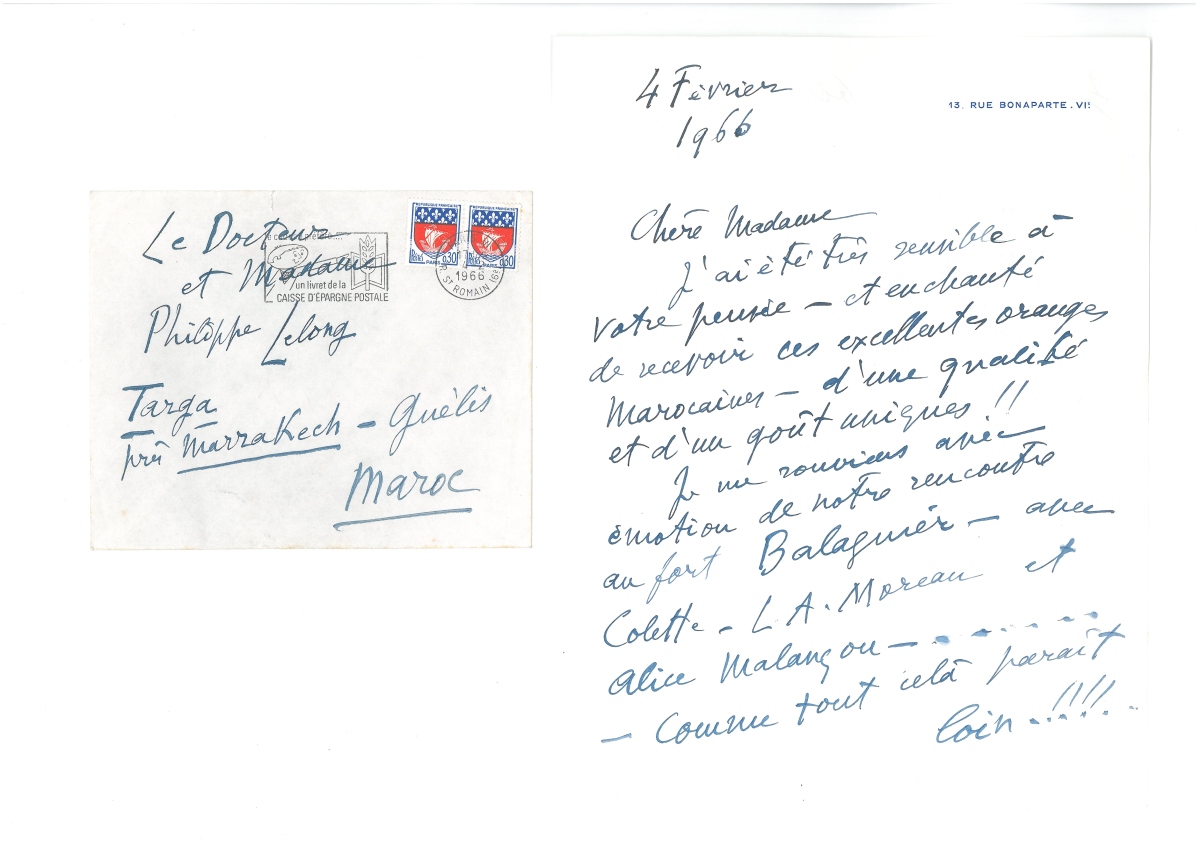 Le Docteur
et Madame
Philippe Lelong
Targa
près Marrakech - Guèlis
Maroc
un livret de la
CAISSE D'ÉPARGNE POSTALE
REPUBLIQUE FRANÇAISE
0.30
PARIS
REPUBLIQUE FRANÇAISE
0.30
PARIS
1966
R. ST ROMAIN (6e)
4 Février
1966
13. RUE BONAPARTE. VIe
Chère Madame
J'ai été très sensible à
votre pensée - et enchanté
de recevoir ces excellentes oranges
Marocaines - d'une qualité
et d'un goût uniques !!
Je me souviens avec
émotion de notre rencontre
au fort Balaguier - avec
Colette - L A. Moreau et
Alice Malançon - . . . . . .
- Comme tout celà paraît
loin ..!!!!...